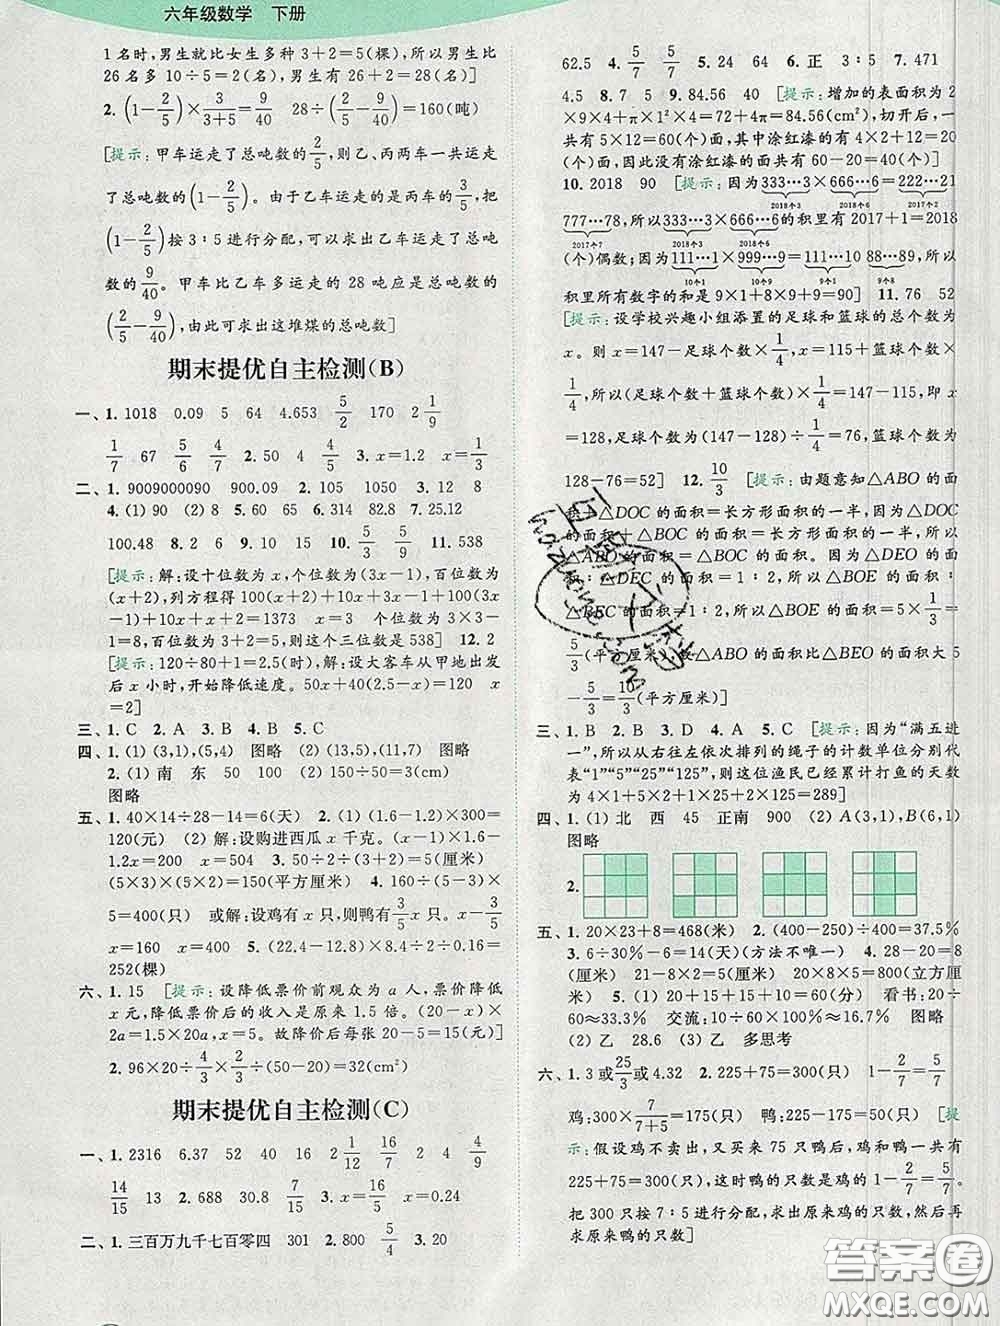 六年级数学　下册
1名时,男生就比女生多种3+2=5(棵),所以男生比
26名多10÷5=2(名),男生有26+2=28(名)]
2. (1-2/5)×3/(3+5)=9/40　28÷(2/5-9/40)=160(吨)
[提示:甲车运走了总吨数的2/5,则乙、丙两车一共运走
了总吨数的(1-2/5)。由于乙车运走的是丙车的3/5,把
(1-2/5)按3∶5进行分配,可以求出乙车运走了总吨数
的9/40。甲车比乙车多运走的28吨应是总吨数的
(2/5-9/40),由此可求出这堆煤的总吨数]
期末提优自主检测(B)
一、1. 1018　0.09　5　64　4.653　5/2　170　2 1/9
1/7　67　5/6　4/7　2. 50　4　4/5　3. x=1.2　x=1/3
二、1. 9009000090　900.09　2. 105　1050　3. 12　8
4. (1) 90　(2) 8　5. 60　65　6. 135　8　7. 25.12
100.48　8. 2　6　9. 10　15　10. 5/3　5/9　11. 538
[提示:解:设十位数为x,个位数为(3x-1),百位数为
(x+2),列方程得100(x+2)+10x+3x-1+100(3x-
1)+10x+x+2=1373　x=3　个位数为3×3-
1=8,百位数为3+2=5,则这个三位数是538]　12. 2
[提示:120÷80+1=2.5(时),解:设大客车从甲地出发
后x小时,开始降低速度。50x+40(2.5-x)=120　x
=2]
三、1. C　2. A　3. B　4. B　5. C
四、1. (1) (3,1),(5,4)　图略　(2) (13,5),(11,7)　图略
2. (1) 南　东　50　100　(2) 150÷50=3(cm)
图略
五、1. 40×14÷28-14=6(天)　2. (1) (1.6-1.2)×300=
120(元)　(2) 解:设购进西瓜x千克。(x-1)×1.6-
1.2x=200　x=504　3. 50÷2÷(3+2)=5(厘米)
(5×3)×(5×2)=150(平方厘米)　4. 160÷(5-3)×
5=400(只)　或解:设鸡有x只,则鸭有3/5x只,x-3/5
x=160　x=400　5. (22.4-12.8)×8÷0.4+15×4=
252(棵)
六、1. 15　[提示:设降低票价前观众为a人,票价降低
x元,降低票价后的收入是原来1.5倍。(20-x)×
2a=1.5×20a,x=5。故降价后每张20-5=15(元)]
2. 96×20÷4/3×2/3÷(50-20)=32(cm²)
期末提优自主检测(C)
一、1. 2316　6.37　52　40　16　2 1/12　16/7　2　4　4/9
14/15　13　2. 688　30.8　7/15　3. x=16/5　x=0.24
二、1. 三百万九千七百零四　301　2. 800　5/4　3. 20
62.5　4. 5/7　5/7　5. 24　64　6. 正　3∶5　7. 471
4.5　8. 7　5　9. 84.56　40　[提示:增加的表面积为2
×9×4+π×1²×4=72+4π=84.56(cm²),切开后,一
共有5×12=60(个)面,其中涂红漆的有4×2+12=20
(个)面,因此没有涂红漆的面共有60-20=40(个)]
10. 2018　90　[提示:因为333…3×666…6=222…21
2018个3　2018个6
777…78,所以333…3×666…6的积里有2017+1=2018
2017个7　2018个3　2018个6
(个)偶数;因为111…1×999…9=111…10 88…89,所以
10个1　10个9　9个1　9个8
积里所有数字的和是9×1+8×9+9=90]　11. 76　52
[提示:设学校兴趣小组添置的足球和篮球的总个数为
x。则x=147-足球个数×1/4,x=115+篮球个数×
1/4,足球个数×1/4+篮球个数×1/4=147-115,即x
=128,足球个数为(147-128)÷1/4=76,篮球个数为
128-76=52]　12. 10/3　[提示:由题意知△ABO的面
积+△DOC的面积=长方形面积的一半,因为△DOC
的面积+△BOC的面积=长方形面积的一半,所以
△ABO的面积=△BOC的面积。因为△DEO的面
积:△DEC的面积=1∶2,所以△BOE的面积∶
△BEC的面积=1∶2,所以△BOE的面积=5×1/3=
5/3(平方厘米),故△ABO的面积比△BEO的面积大5
-5/3=10/3(平方厘米)]
三、1. B　2. B　3. D　4. A　5. C　[提示:因为“满五进
一”,所以从右往左依次排列的绳子的计数单位分别代
表“1”“5”“25”“125”,则这位渔民已经累计打鱼的天数
为4×1+5×2+1×25+2×125=289]
四、1. (1) 北　西　45　正南　900　(2) A(3,1),B(6,1)
图略
2.
五、1. 20×23+8=468(米)　2. (400-250)÷400=37.5%
3. 6÷30%-6=14(天)(方法不唯一)　4. 28-20=8
(厘米)　21-8×2=5(厘米)　20×8×5=800(立方厘
米)　5. (1) 20+15+15+10=60(分)　看书:20÷
60≈33.3%　交流:10÷60≈16.7%　图略
(2) 乙　28.6　(3) 乙　多思考
六、1. 3或25/3或4.32　2. 225+75=300(只)　1-2/7=5/7
鸡:300×7/(7+5)=175(只)　鸭:225-175=50(只)　[提
示:假设鸡不卖出,又买来75只鸭后,鸡和鸭一共有
225+75=300(只),这时鸭的只数是鸡的1-2/7=5/7。
把300只按7∶5进行分配,求出原来鸡的只数,然后再
求原来鸭的只数]
答案圈
MXQE.COM